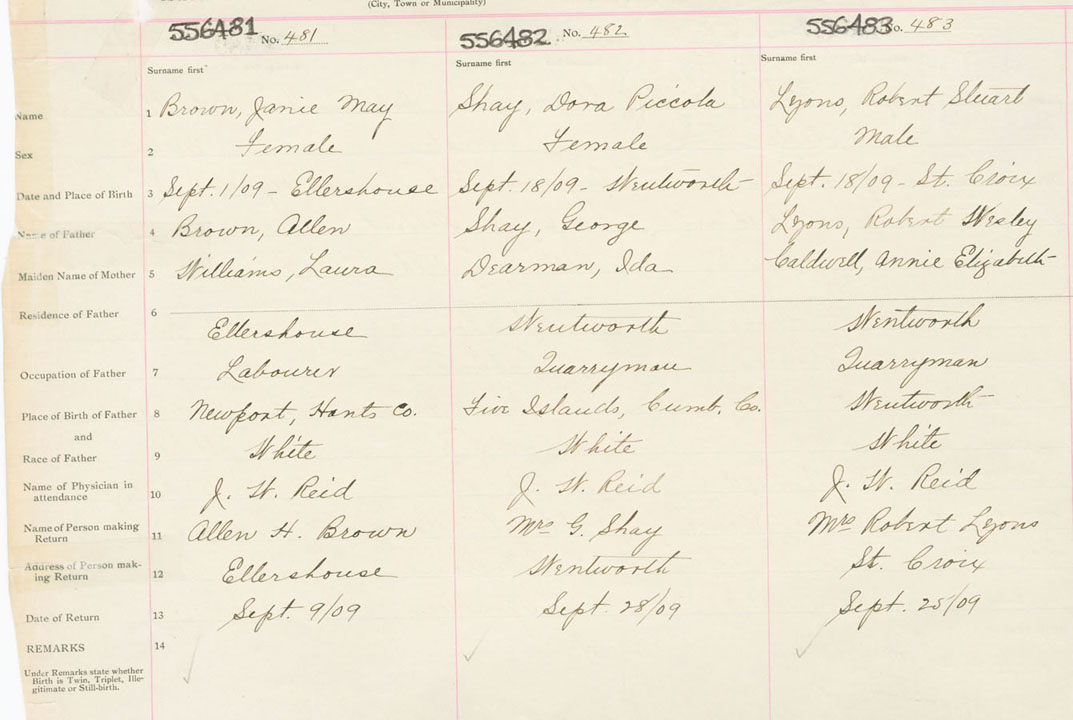 (City, Town or Municipality)
556481 No. 481 556482 No. 482 556483 No. 483
Surname first Surname first Surname first
Name 1 Brown, Janie May Shay, Dora Piccola Lyons, Robert Stuart
Sex 2 Female Female Male
Date and Place of Birth 3 Sept. 1/09 - Ellershouse Sept. 18/09 - Wentworth Sept. 18/09 - St. Croix
Name of Father 4 Brown, Allen Shay, George Lyons, Robert Wesley
Maiden Name of Mother 5 Williams, Laura Dearman, Ida Caldwell, Annie Elizabeth
Residence of Father 6 Ellershouse Wentworth Wentworth
Occupation of Father 7 Labourer Quarryman Quarryman
Place of Birth of Father 8 Newport, Hants Co. Five Islands, Cumb. Co. Wentworth
and
Race of Father 9 White White White
Name of Physician in
attendance 10 J. W. Reid J. W. Reid J. W. Reid
Name of Person making
Return 11 Allen H. Brown Mrs G. Shay Mrs Robert Lyons
Address of Person mak-
ing Return 12 Ellershouse Wentworth St. Croix
Date of Return 13 Sept. 9/09 Sept. 28/09 Sept. 25/09
REMARKS 14
Under Remarks state whether
Birth is Twin, Triplet, Ille-
gitimate or Still-birth.